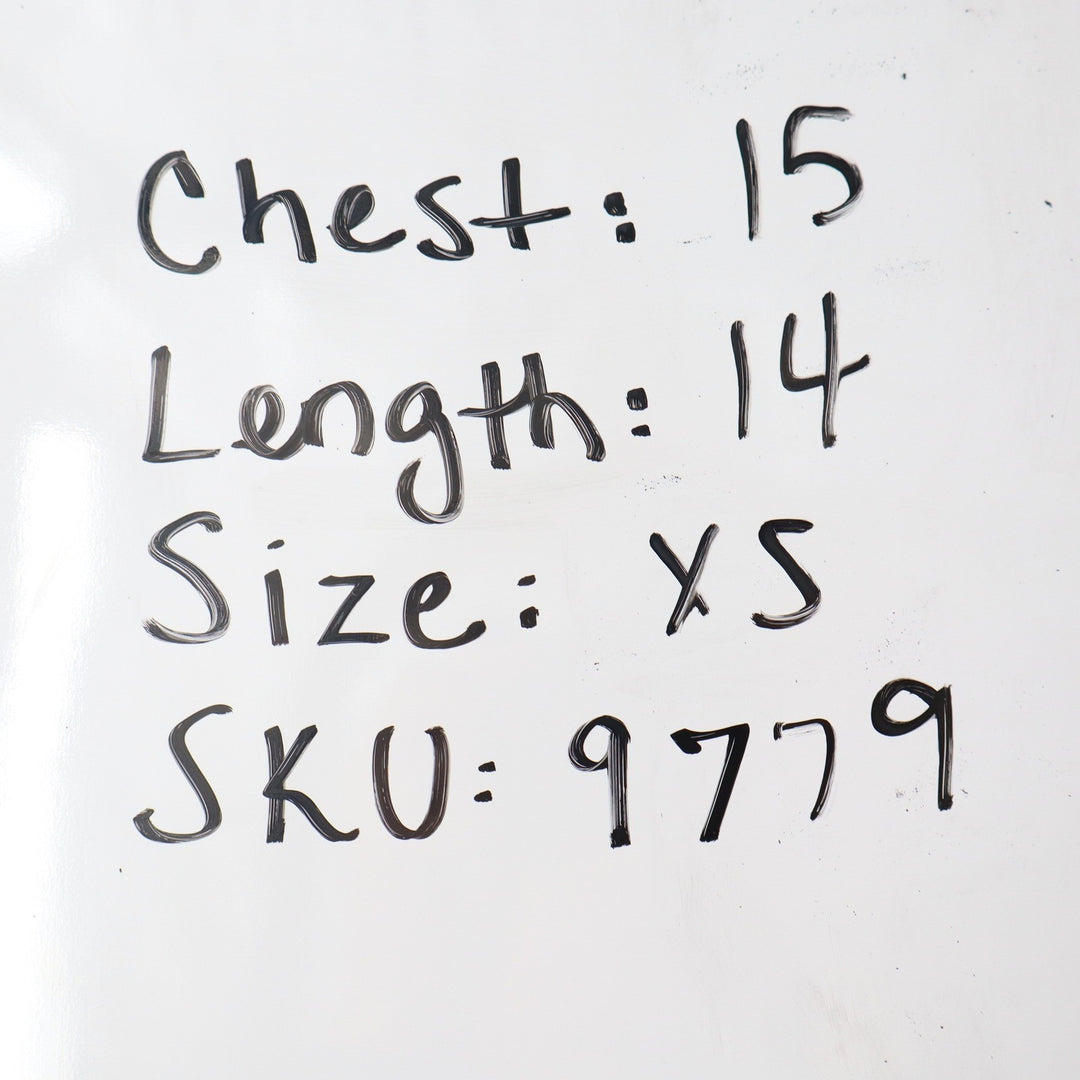 Chest: 15
Length: 14
Size: XS
SKU: 9779